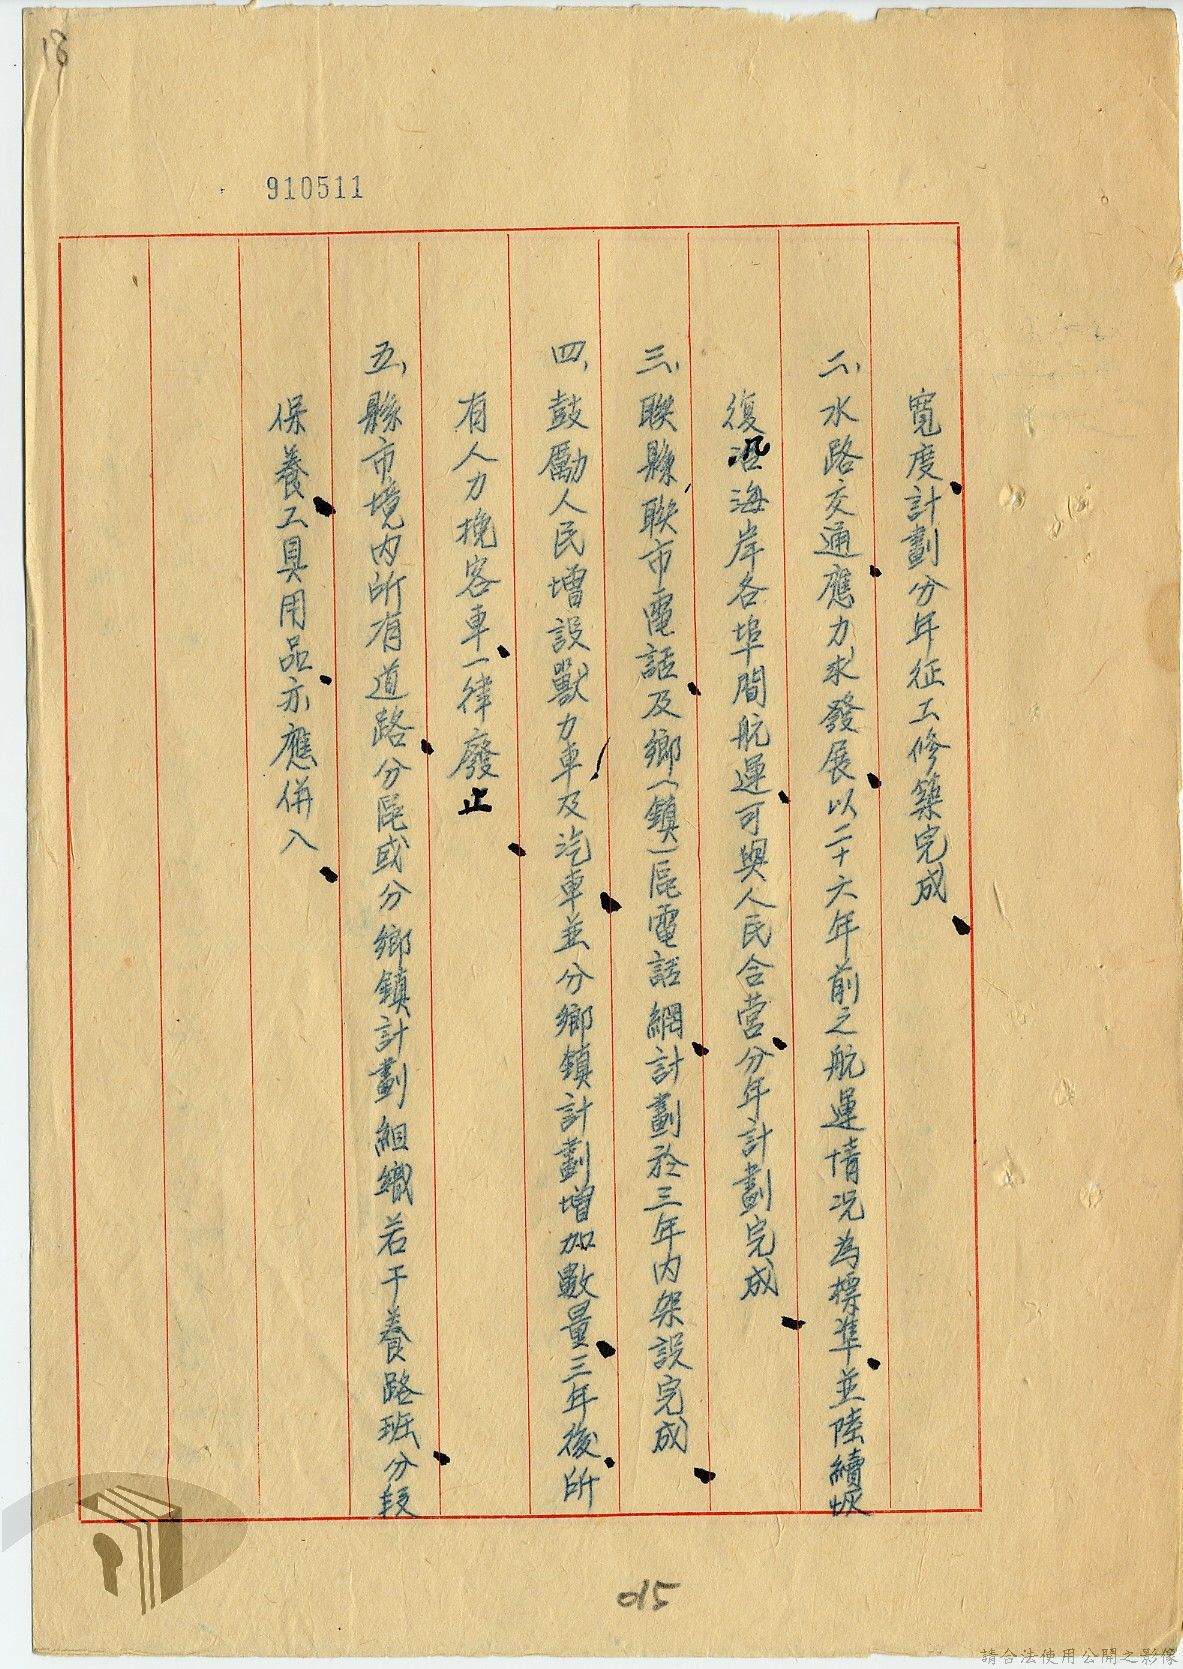 18
910511
寬度計劃分年征工修築完成
二、水路交通應力求發展以二十六年前之航運情況為標準並陸續恢
復沿海岸各埠間航運可與人民合营分年計劃完成
三、聯縣聯市電話及鄉(鎮)區電話網計劃於三年內架設完成
四、鼓勵人民增設獸力車及汽車並分鄉鎮計劃增加數量三年後所
有人力挽客車一律廢止
五、縣市境內所有道路分區或分鄉鎮計劃組織若干養路班分段
保養工具用品亦應併入
015
請合法使用公開之影像